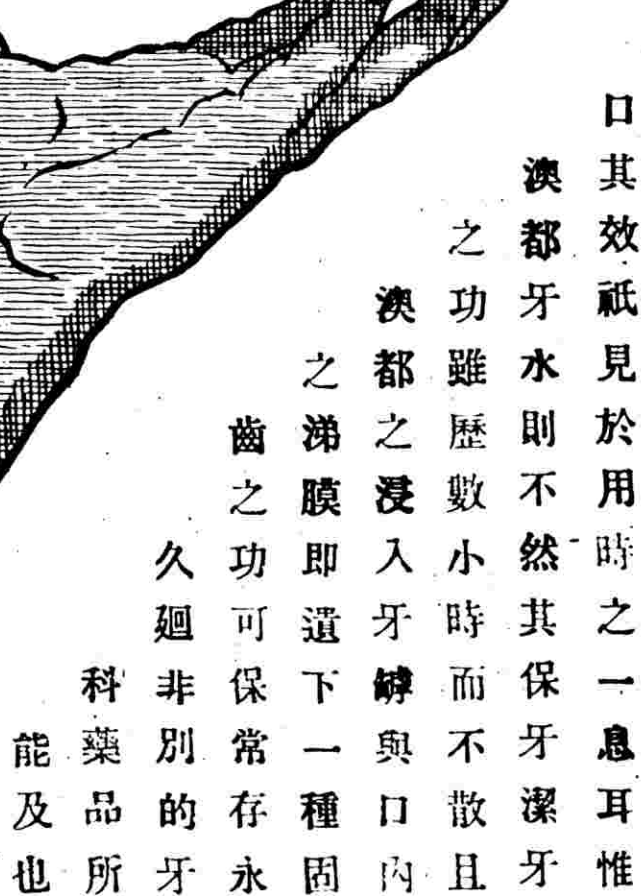 口其效祇見於用時之一息耳惟
澳都牙水則不然其保牙潔牙
之功雖歷數小時而不散且
澳都之浸入牙罅與口內
之涕膜即遺下一種固
齒之功可保常存永
久廻非別的牙
科藥品所
能及也